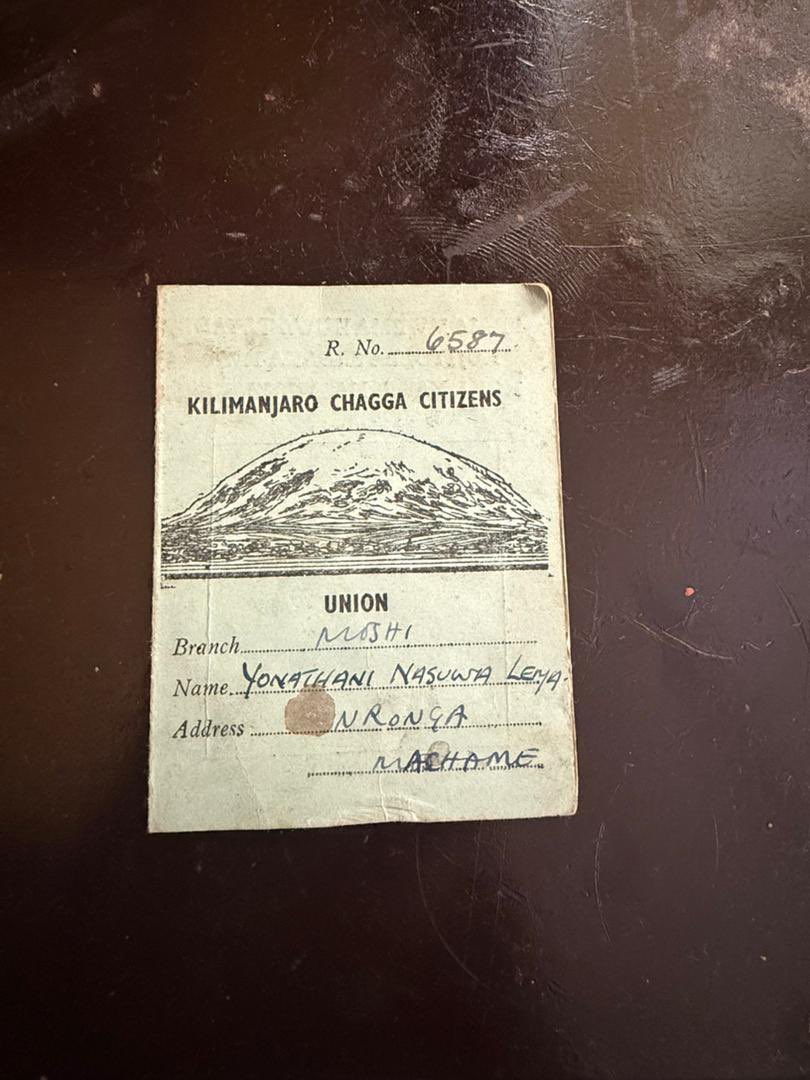 R. No. 6587
KILIMANJARO CHAGGA CITIZENS
UNION
Branch MOSHI
Name YONATHANI NASUWA LEMA.
Address NRONGA
MACHAME